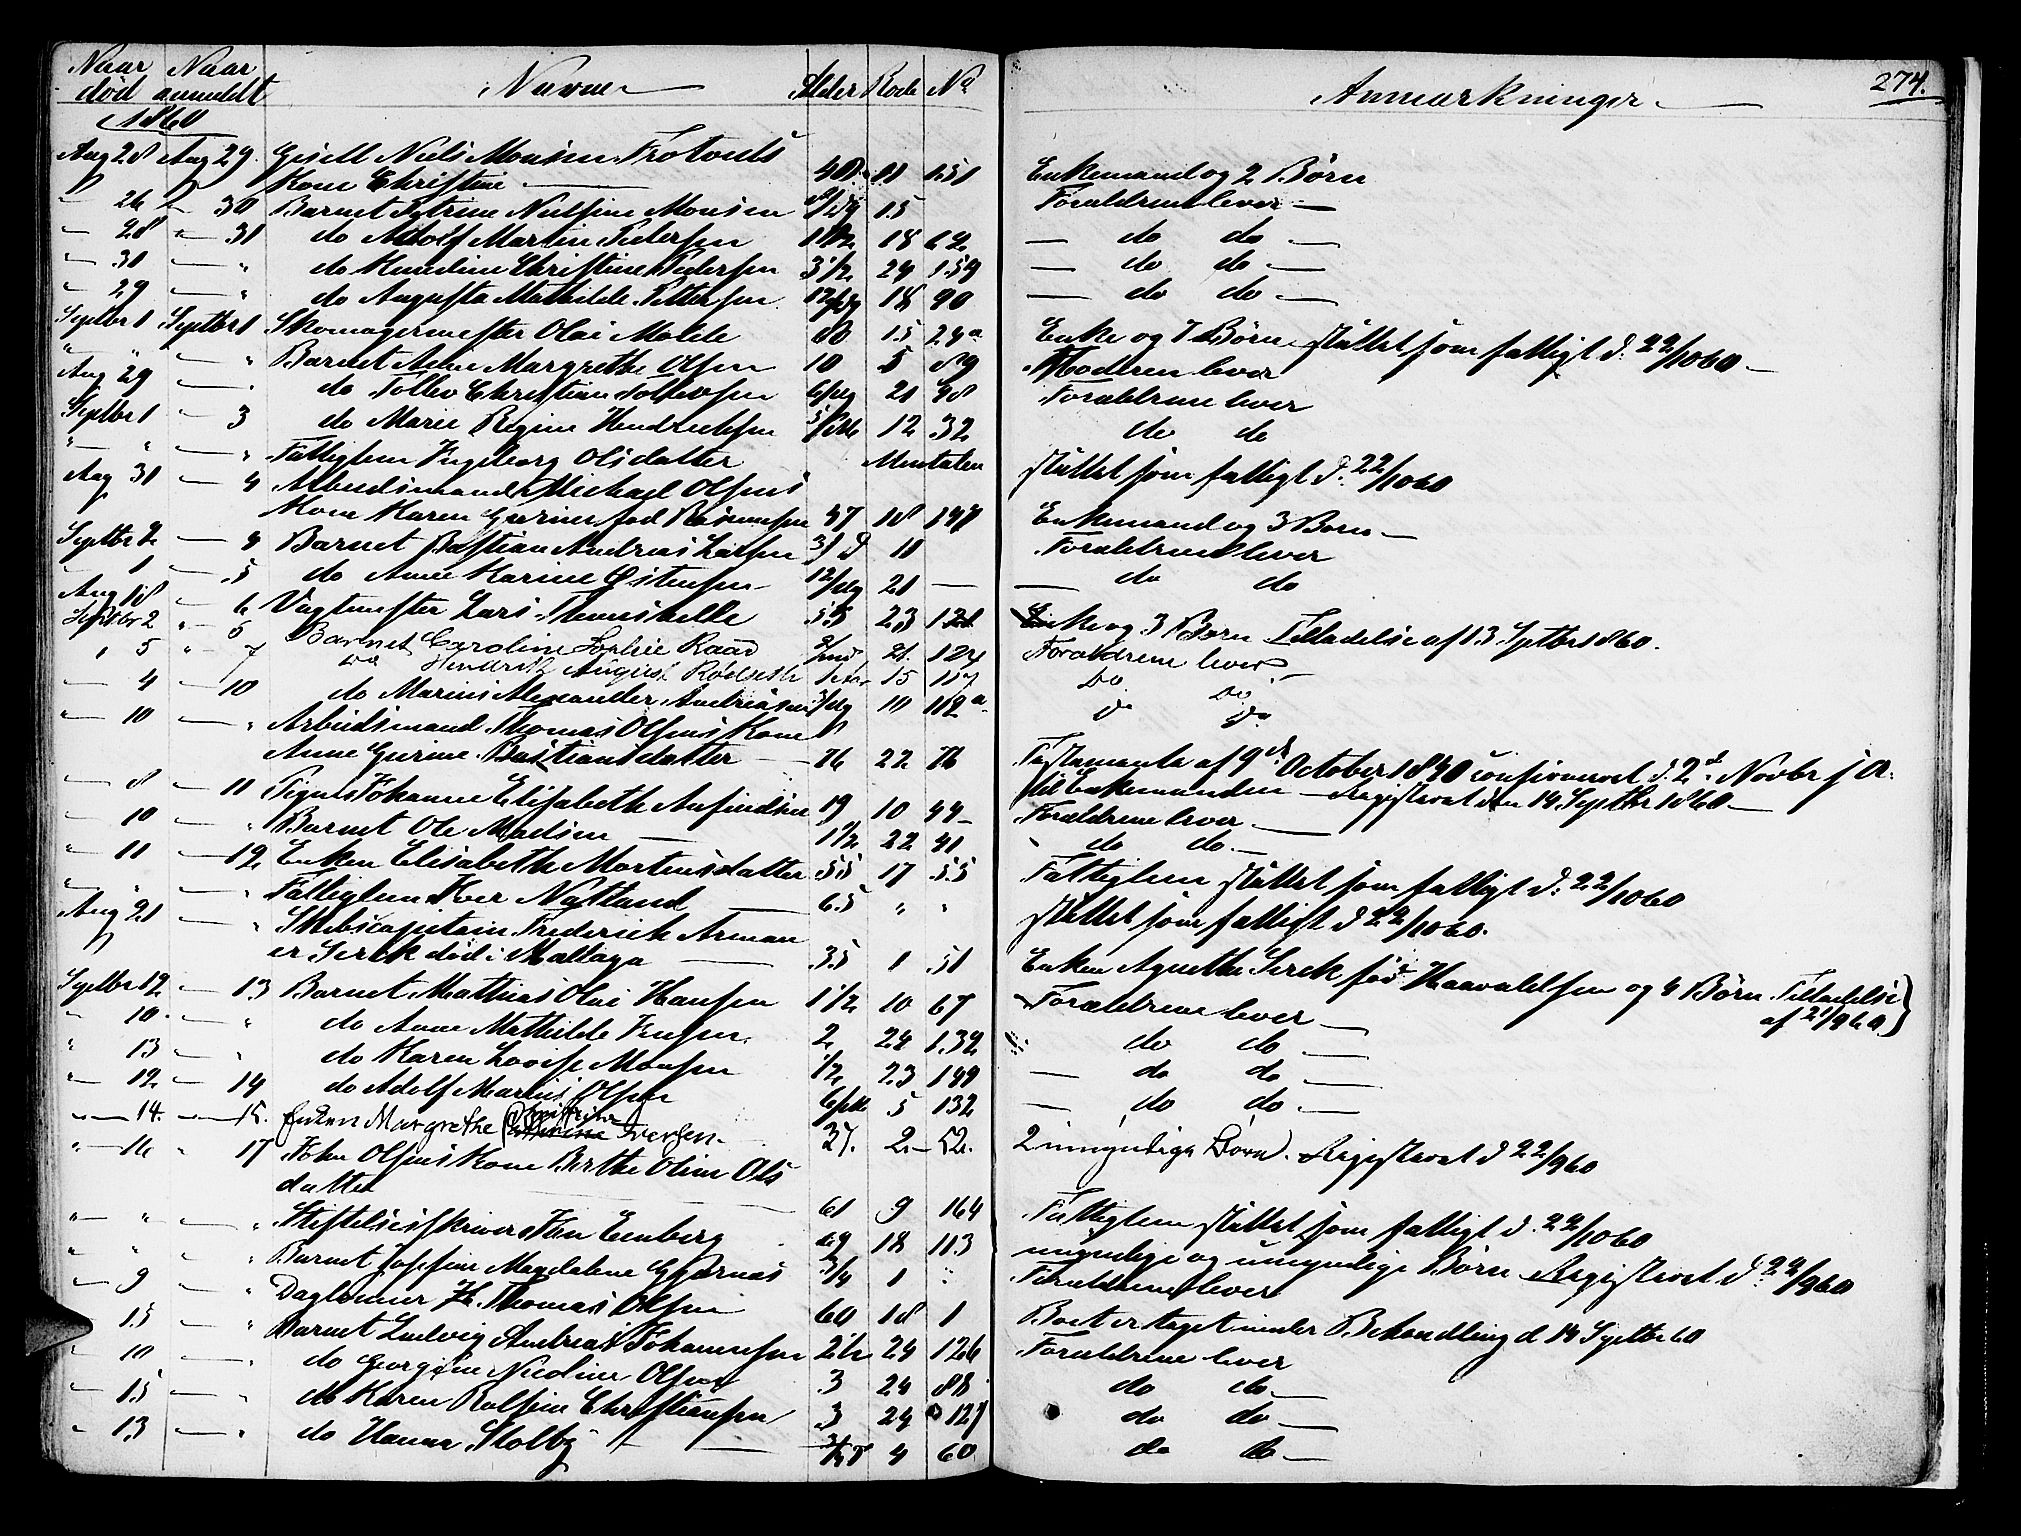 Naar Naar Navne Alder Rode No Anmærkninger 274.
død anmeldt
1860
Aug 28 Aug 29. Gisell Niels Monsen Frotveds
Kone Christine 40 11 151 Enkemand og 2 Børn
" 26 " 30 Barnet Petrine Nielsine Monsen 15 Forældrene lever
" 28 " 31 do Adolf Martin Pedersen 18 62 do do
" 31 " " do Christine Pedersen 3 1/2 24 159 do do
" 29 " " do Augusta Mathilde Pettersen 18 90 do do
Septbr 1 Septbr 1 Skomagermester Olai Molde 68 15 24a Enke og 7 Børn sluttet som fattigt d. 22/10 60
" " " " Barnet Anne Margrethe Olsen 10 5 89 Moderen lever
Aug 29 " " do Tollev Christian Tollevsen 21 48 Forældrene lever
Septbr 1 " 3 do Marie Regine Hendriksen 12 32 do do
" " " " Fattiglem Ingeborg Olsdatter sluttet som fattigt d. 22/10 60
Aug 31 " 4 Arbeidsmand Michael Olsens
Kone Karen Gurine fød Rasmussen 47 18 147 Enkemand og 3 Børn
Septbr 2 " 4 Barnet Bastian Andreas Larsen 11 Forældrene lever
" 1 " 5 do Anne Karine Østensen 21 do do
Aug 18 " 6 Vagtmester Lars Thomskelle 55 23 121 Enke og 3 Børn Tilladelse af 13 Septbr 1860.
Septbr 2 " 6 Barnet Caroline Sophie Raad 21. 124 Forældrene lever
" 5 " 7 Do Hendrik August Rødseth 15 117 Do Do
" 4 " 10 do Marius Alexander Andreasen 11 112a Do Do
" 10 " " Arbeidsmand Thomas Olsens Kone
Anne Gurine Bastiansdatter 76 22 76 Testamente af 9de October 1840 confirmeret d. 2d Novbr s A.
" 8 " 11 Pigen Johanne Elisabeth Anfindsen 19 10 44 til Enkemanden Registeret den 14 Septbr 1860
" 10 " " Barnet Ole Madsen 1 1/2 22 41 Forældrene lever
do do
" 11 " 12 Enken Elisabeth Mortensdatter 55 17 55 Fattiglem sluttet som fattigt d. 22/10 60
" " " " Fattiglem Iver Natland 65 " " sluttet som fattigt d 22/10 60.
Aug 21 " Skibscapitain Frederick Arman
er Serck død i Mallaga 35 1 51 Enken Agnethe Serck fød Haavaldsen og 4 Børn Tilladelse
af 21/9 60
Septbr 12 " 13 Barnet Mathias Olai Hansen 1 1/2 10 67 Forældrene lever
" 10 " " do Anne Mathilde Jensen 2 24 132 do do
" 13 " " do Karen Lovise Monsen 1/2 23 149 do do
" 12 " 14 do Adolf Marius Olsen 5 132 do do
" 14. " 15. Enken Margrethe Iversen 37. 2. 52. 2 umyndige Børn. Registeret d 22/9 60
" 16 " 17 John Olsens Kone Berthe Oline Ols
datter 61 9 164 Fattiglem sluttet som fattigt d. 22/10 60
" " " " Stiftelsesskriver Jon Eenberg 69 18 113 myndige og umyndige Børn Registeret d. 22/9 60
" " " " Barnet Josefine Magdalene Gjernæs 3/4 1 Forældrene lever
" 9 " " Dagleiner Thomas Olsen 60 18 1 Boet er taget under Behandling d 14 Septbr 60
" 15 " " Barnet Ludvig Andreas Johannesen 2 1/2 24 126 Forældrene lever
" 10 " " do Georgine Nicoline Olsen 3 24 88 do do
" 15 " " do Karen Rolfine Christiansen 3 24 127 do do
" 13 " " do Hanna Stolby 4 60 do do